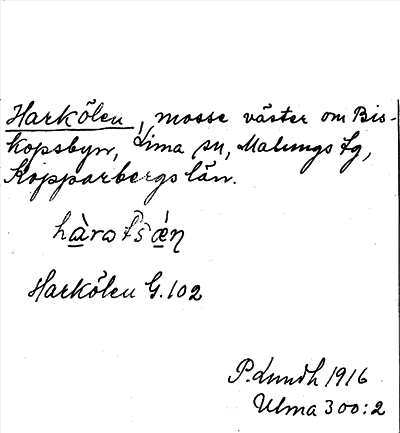 Harkölen, mosse väster om Bis-
kopsbyn, Lima sn, Malungs tg,
Kopparbergs län.
Harkölen G.102
P. Lundh 1916
Ulma 300:2